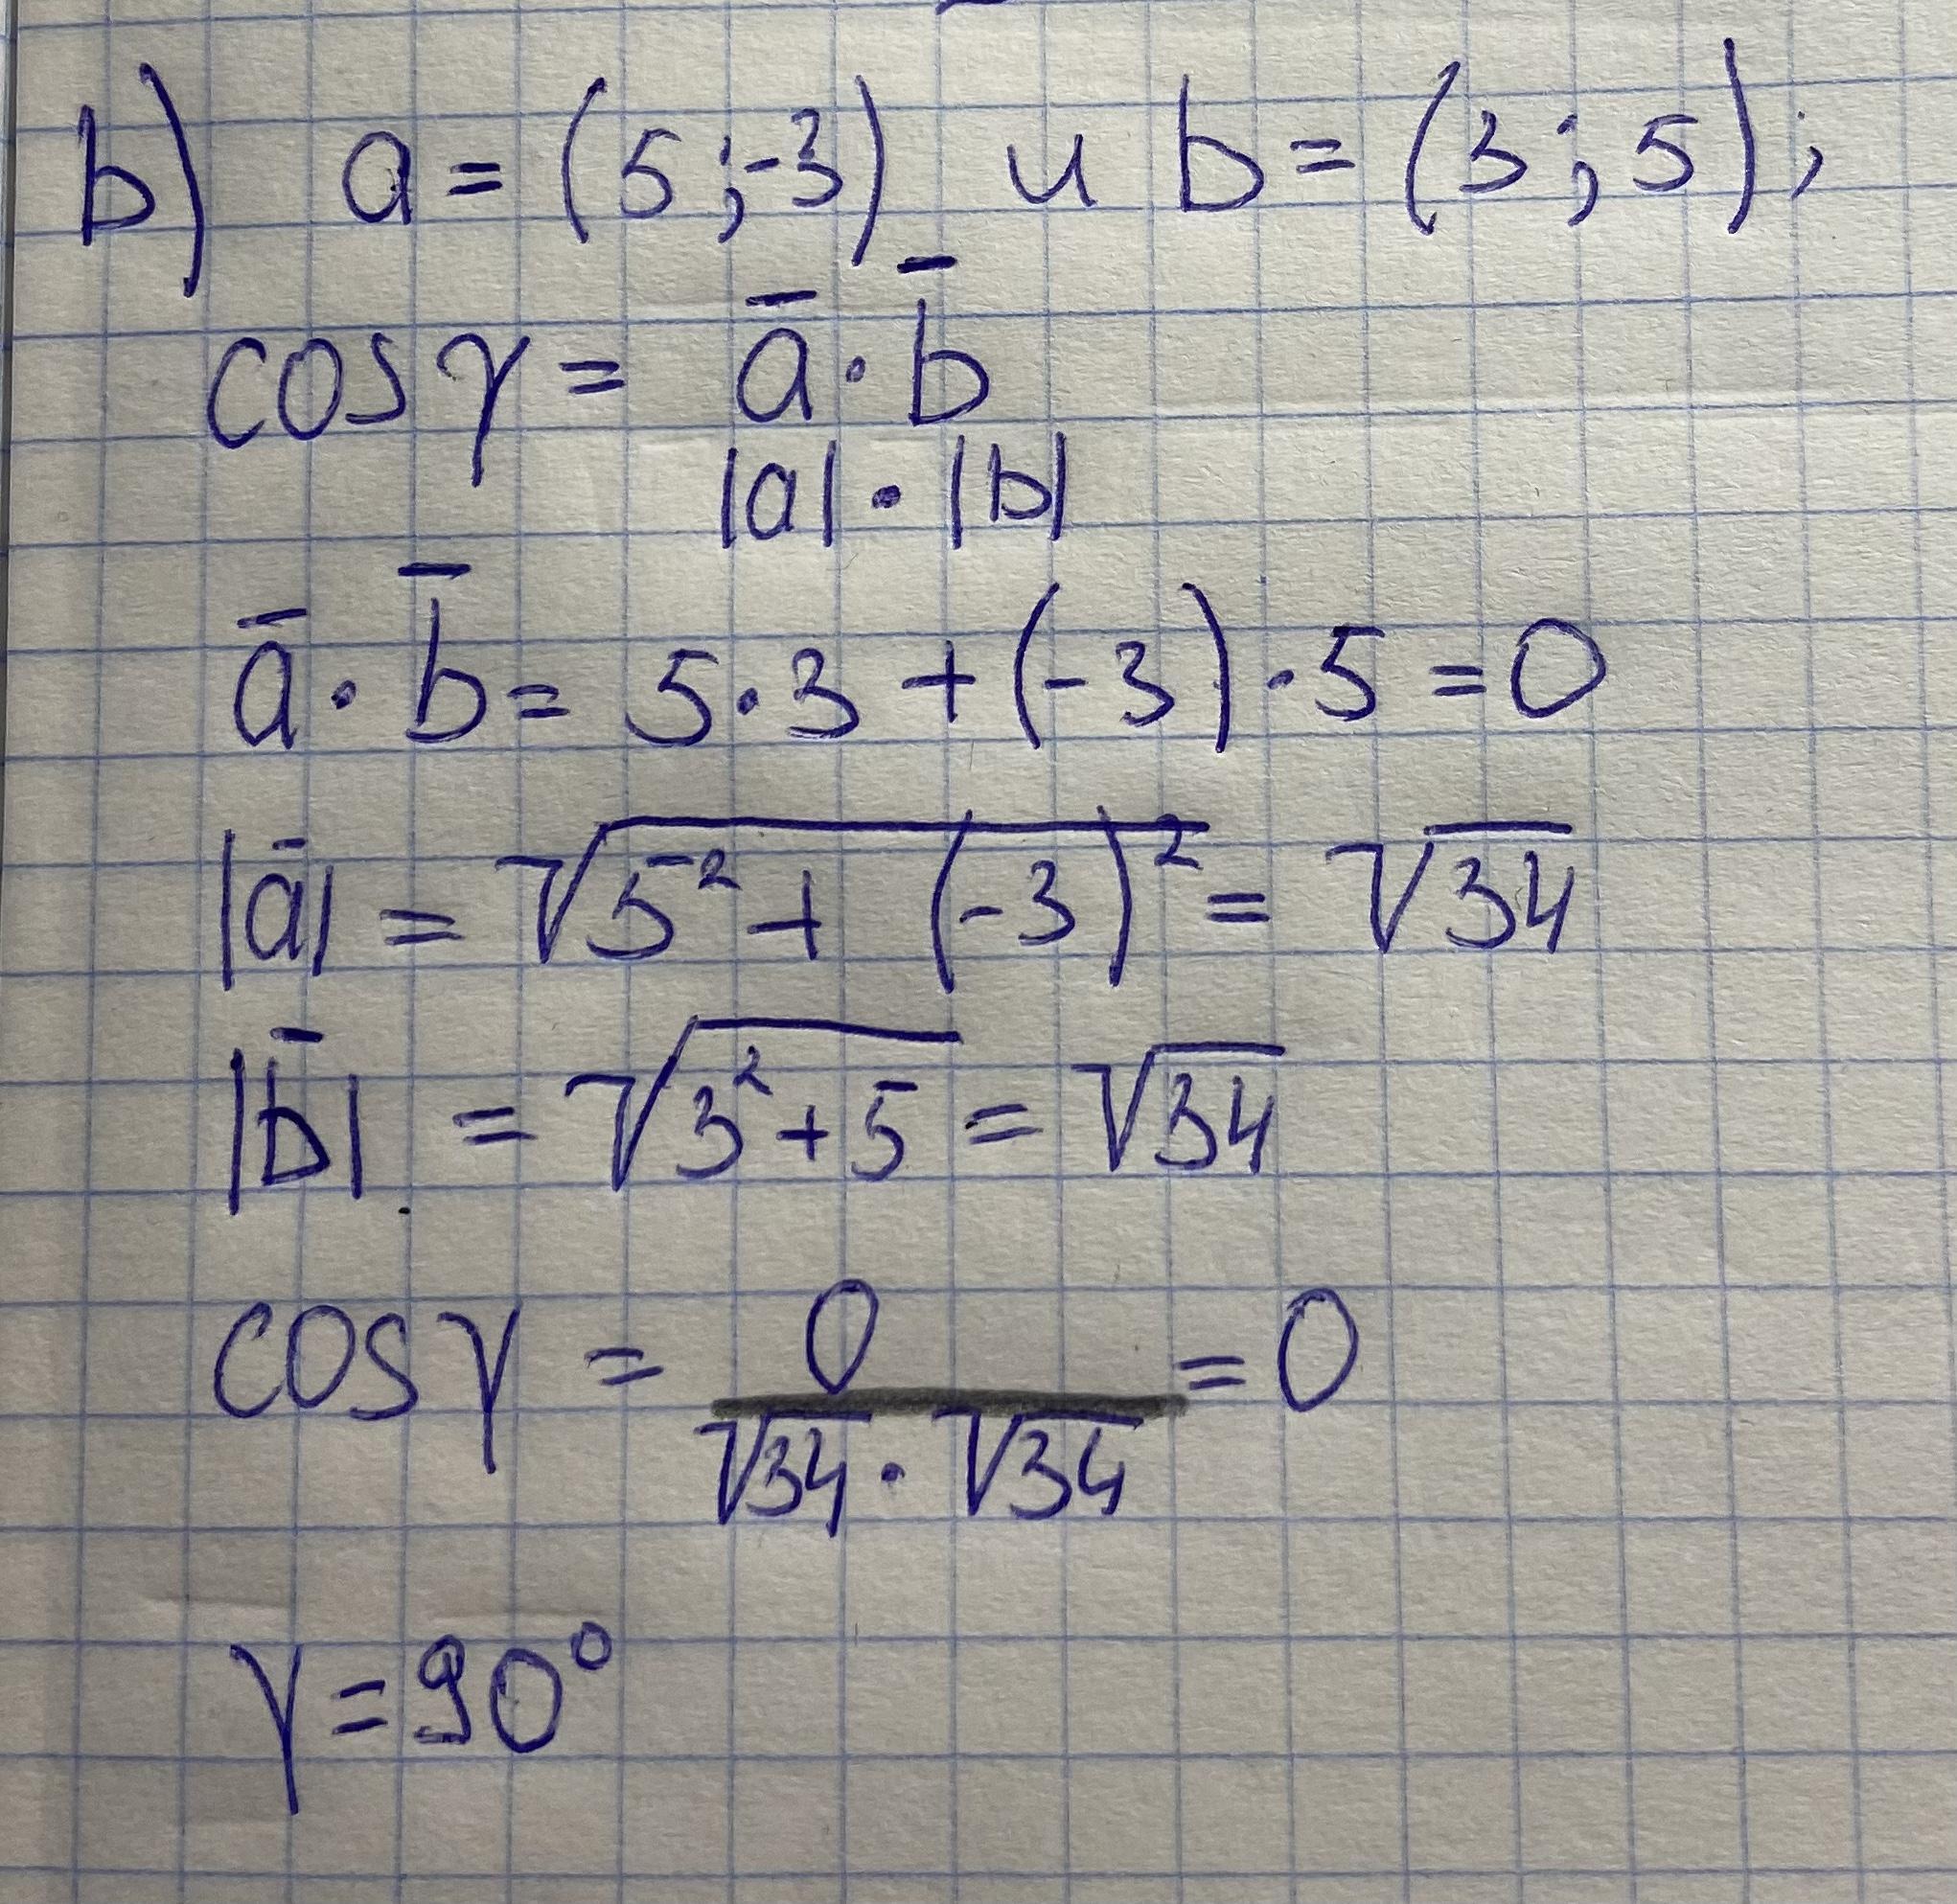 b) a = (5;-3) и b = (3;5);
cos γ = a̅ · b̅
|a| · |b|
a̅ · b̅ = 5·3 + (-3)·5 = 0
|a̅| = √5² + (-3)² = √34
|b̅| = √3² + 5 = √34
cos γ = 0 / √34 · √34 = 0
γ = 90°